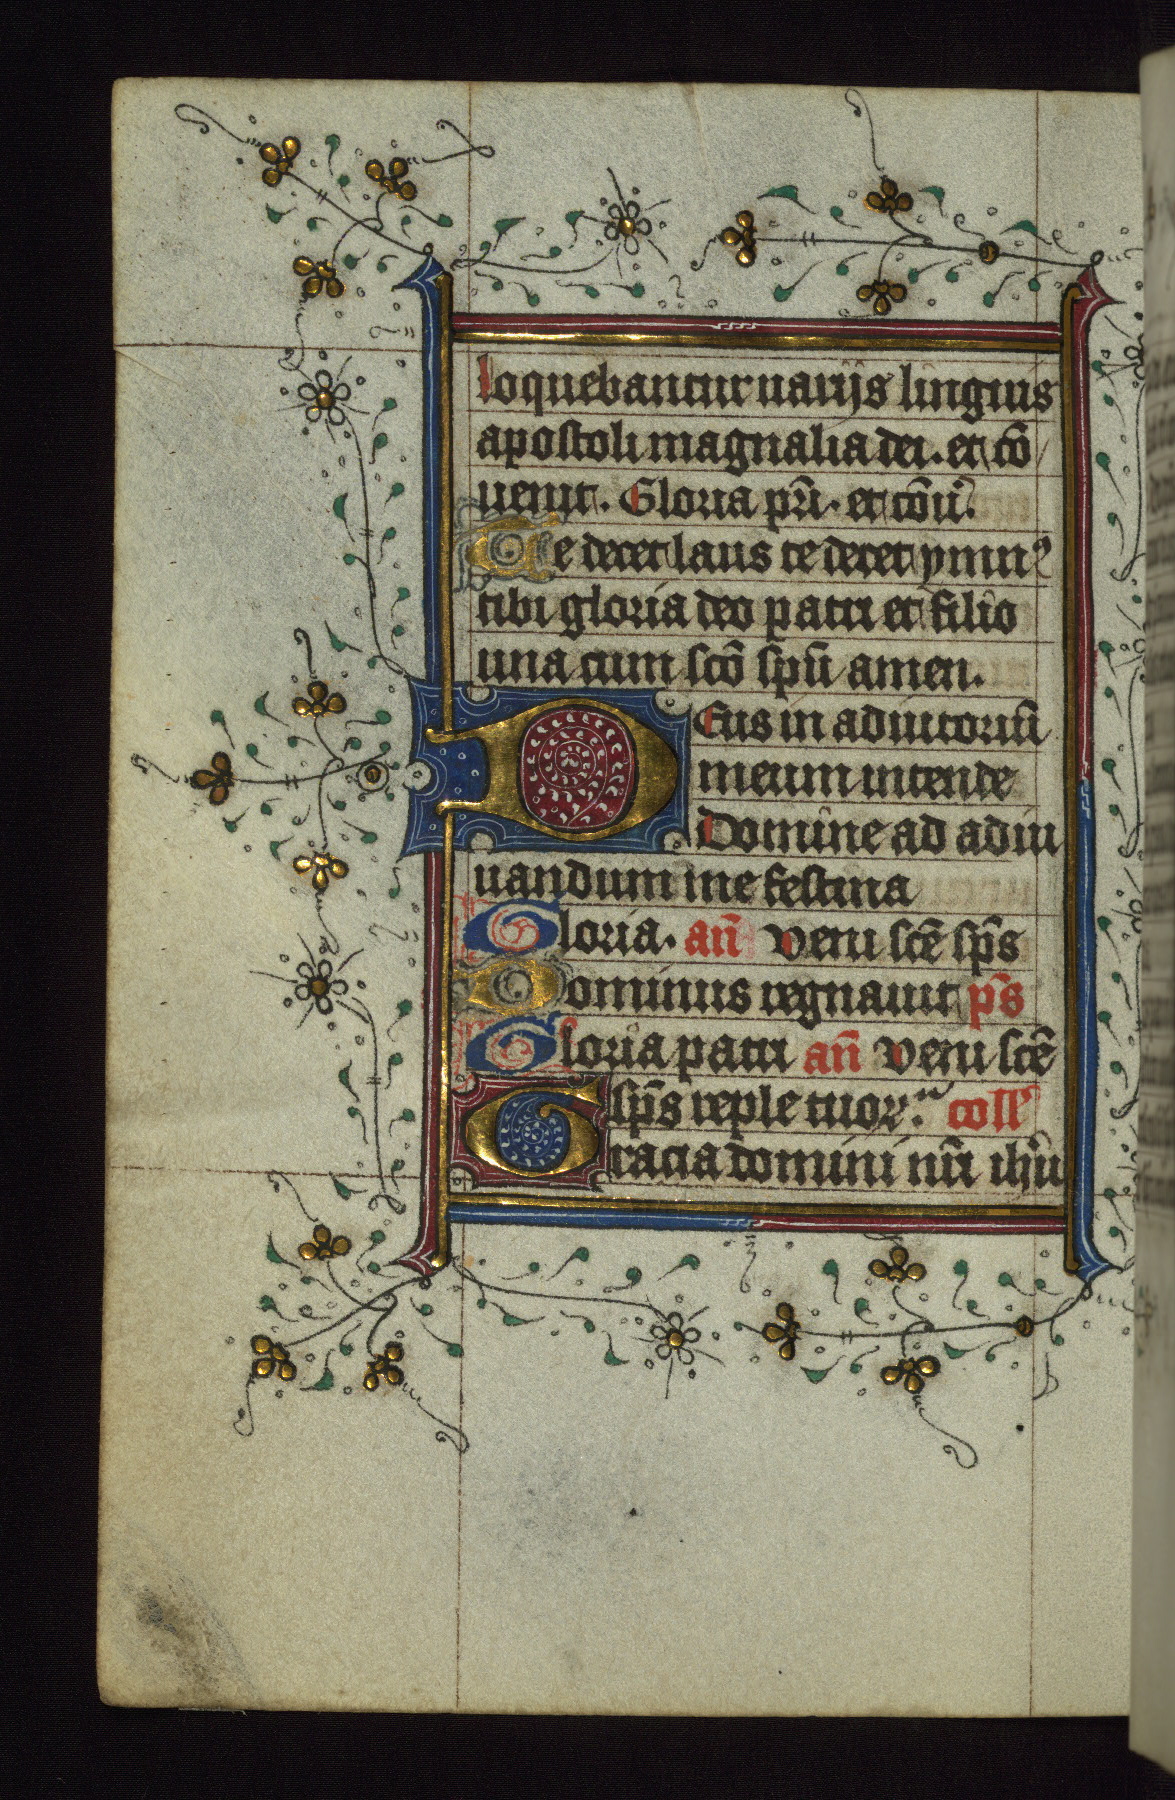 loquebantur uarijs linguis
apostoli magnalia dei. et cō
uenit. Gloria pr̄i. et cōu᷑.
Te decet laus te decet ymnꝰ
tibi gloria deo patri et filio
una cum sc̄o sp̄u amen.
Deus in adiutoriū
meum intende
Domine ad adiu
uandum me festina
Gloria. an̄ Veni sc̄e sp̄s
Dominus regnauit p̄s
Gloria patri an̄ Veni sc̄e
sp̄s reple tuoꝝ. coll᷑
Gracia domini nr̄i ihū